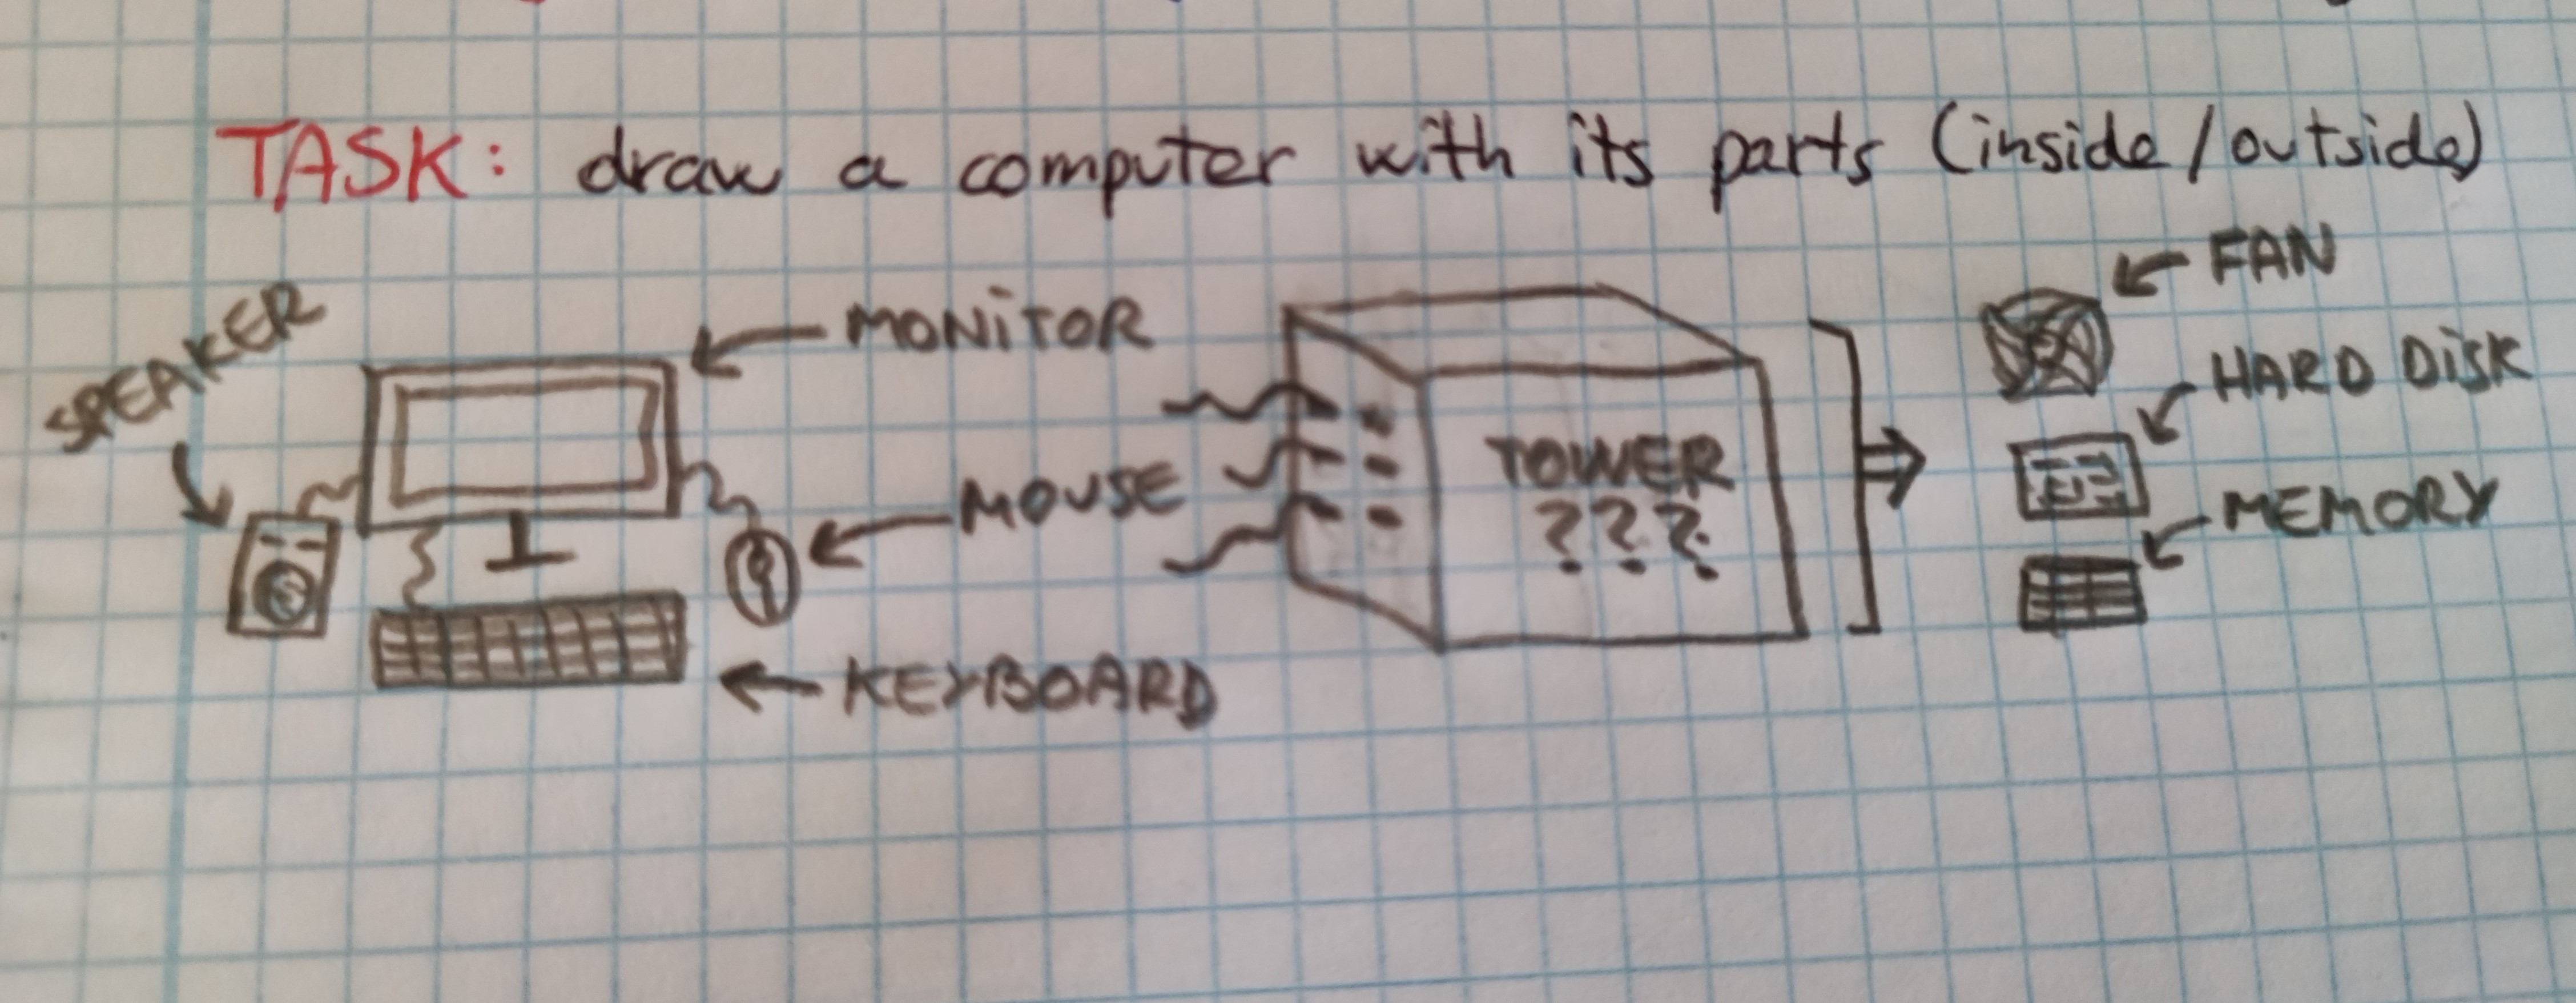 TASK: draw a computer with its parts (inside/outside)
SPEAKER
MONiTOR
MOUSE
KEYBOARD
TOWER
???
FAN
HARD DiSK
MEMORY